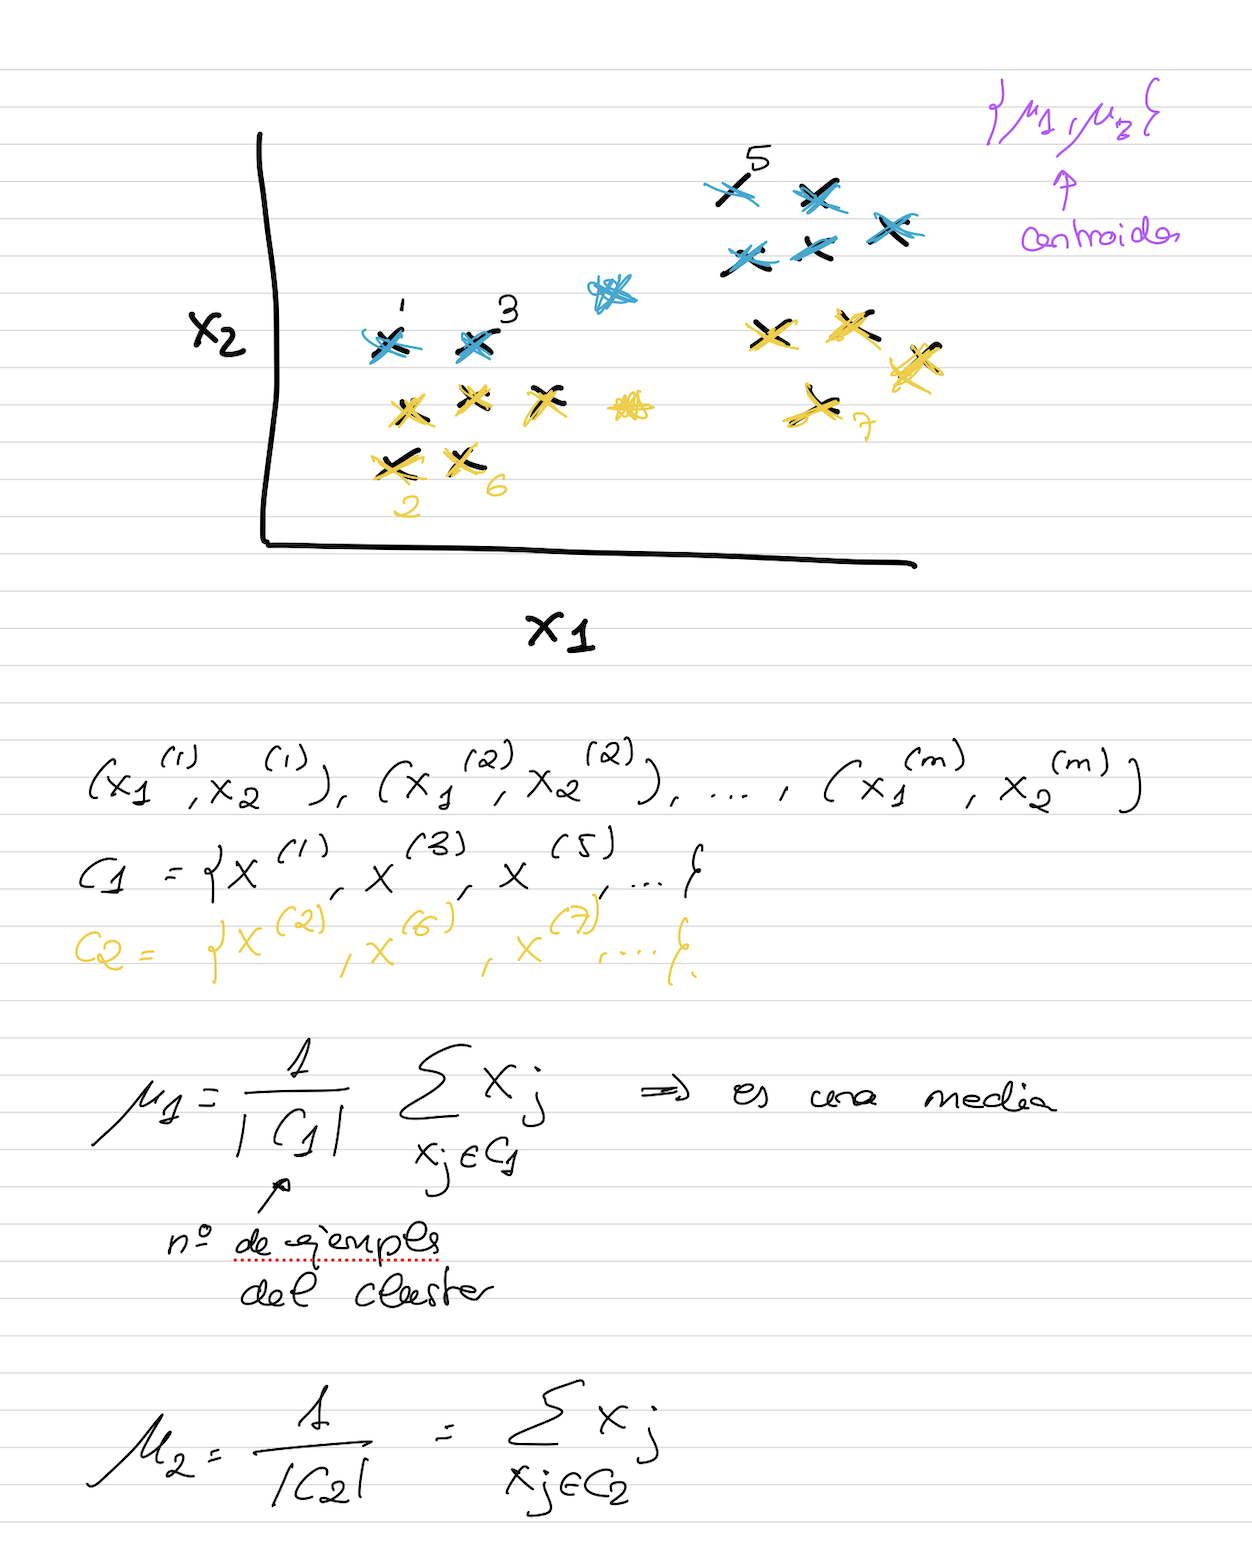 {μ1, μ2}
centroides
5
1
3
x2
7
6
2
x1
(x1^(1), x2^(1)), (x1^(2), x2^(2)), ..., (x1^(m), x2^(m))
C1 = {x^(1), x^(3), x^(5), ...}
C2 = {x^(2), x^(6), x^(7), ....}.
μ1 = 1/|C1| Σ_{xj∈C1} xj ⇒ es una media
nº de ejemplos
del cluster
μ2 = 1/|C2| = Σ_{xj∈C2} xj